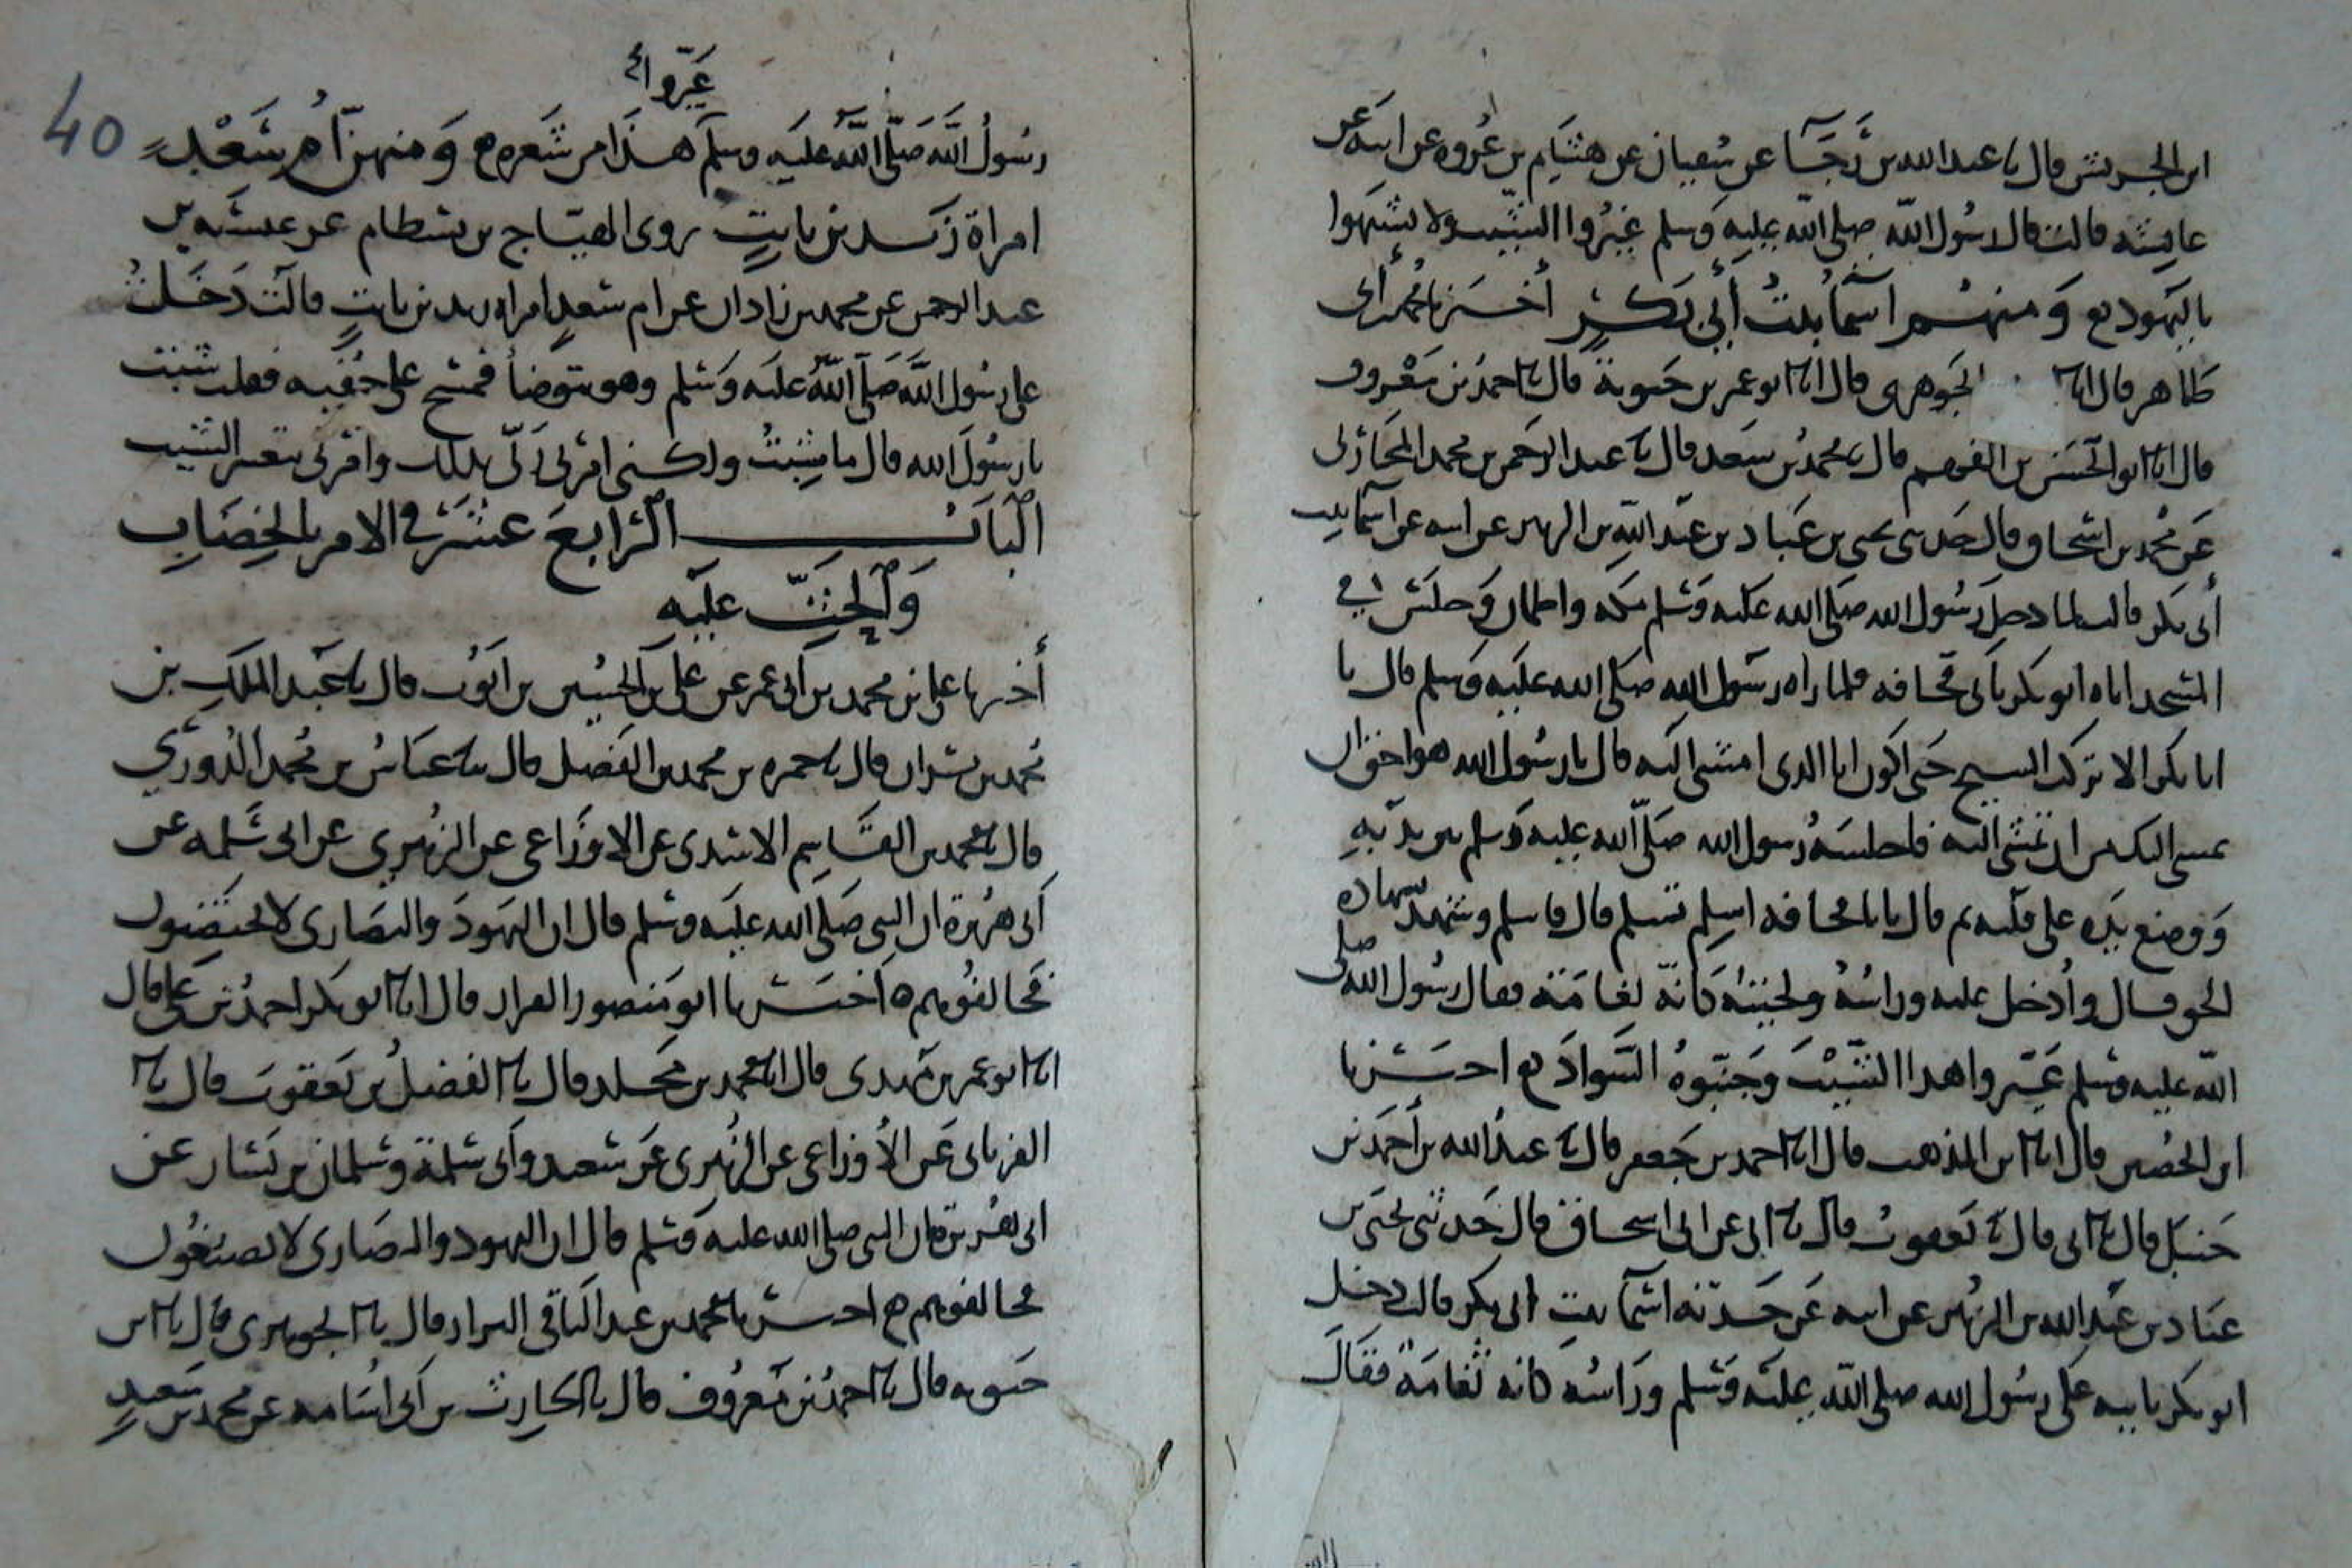 ابن الجريش قال نا عبد الله بن رجاء عن سفيان عن هشام بن عروة عن ابيه عن
عايشه قالت قال رسول الله صلى الله عليه وسلم غيروا الشيب ولا تشبهوا
باليهود ومنهم اسما بنت أبي بكر أخبرنا محمد بن أبي
طاهر قال انا الجوهري قال انا ابو عمر بن حيوية قال نا احمد بن معروف
قال انا ابو الحسن بن الفهم قال نا محمد بن سعد قال نا عبد الرحمن بن محمد المحاربي
عن محمد بن اسحاق قال حدثني يحيى بن عباد بن عبد الله بن الزبير عن ابيه عن اسما بنت
أبي بكر قالت لما دخل رسول الله صلى الله عليه وسلم مكه واطمان وجلس في
المسجد اتاه ابو بكر بأبي قحافه فلما راه رسول الله صلى الله عليه وسلم قال يا
ابا بكر الا تركت الشيخ حتى اكون انا الذي امشي اليه قال يا رسول الله هو احق ان
يمشي اليك من ان تمشي اليه فاجلسه رسول الله صلى الله عليه وسلم بين يديه
ووضع يده على قلبه ثم قال يا با قحافه اسلم تسلم قال فاسلم وشهد شهاده
الحق قال وأدخل عليه وراسه ولحيته كانه ثغامة فقال رسول الله صلى
الله عليه وسلم غيروا هذا الشيب وجنبوه السواد اخبرنا
ابن الحصين قال انا ابن المذهب قال انا احمد بن جعفر قال نا عبد الله بن أحمد بن
حنبل قال نا ابي قال نا يعقوب قال نا ابي عن ابي اسحاق قال حدثني يحيى بن
عباد بن عبد الله بن الزبير عن ابيه عن جدته اسما بنت ابي بكر قالت دخل
ابو بكر بابيه على رسول الله صلى الله عليه وسلم وراسه كانه ثغامة فقال
40
غيروا
رسول الله صلى الله عليه وسلم هذا من شعره ومنهن أم سعد
امراة زيد بن ثابت روى الهياج بن بسطام عن عنبسه بن
عبد الرحمن عن محمد بن زاذان عن ام سعد امراه زيد بن ثابت قالت دخلت
على رسول الله صلى الله عليه وسلم وهو يتوضأ فمسح على خفيه فقلت شبت
يا رسول الله قال ما شبت ولكني امرني ربي بذلك وامرني بتغير الشيب
الباب الرابع عشر في الامر بالخضاب
والحث عليه
أخبرنا علي بن محمد بن ابي عمر عن علي بن الحسين بن ايوب قال نا عبد الملك بن
محمد بن بشران قال نا حمزه بن محمد بن الفضل قال نا عباس بن محمد الدوري
قال نا محمد بن القاسم الاسدي عن الاوزاعي عن الزهري عن ابي سلمه عن
أبي هريرة ان النبي صلى الله عليه وسلم قال ان اليهود والنصارى لا يختضبون
فخالفوهم اخبرنا ابو منصور القزاز قال انا ابو بكر احمد بن علي قال
انا ابو عمر بن مهدي قال انا محمد بن مخلد قال نا الفضل بن يعقوب قال نا
الفريابي عن الأوزاعي عن الزهري عن سعيد وأبي سلمة وسليمان بن يسار عن
ابي هريرة قال النبي صلى الله عليه وسلم قال ان اليهود والنصارى لا يصبغون
فخالفوهم اخبرنا محمد بن عبد الباقي البزاز قال نا الجوهري قال نا ابن
حيويه قال نا احمد بن معروف قال نا الحارث بن أبي اسامه عن محمد بن سعد